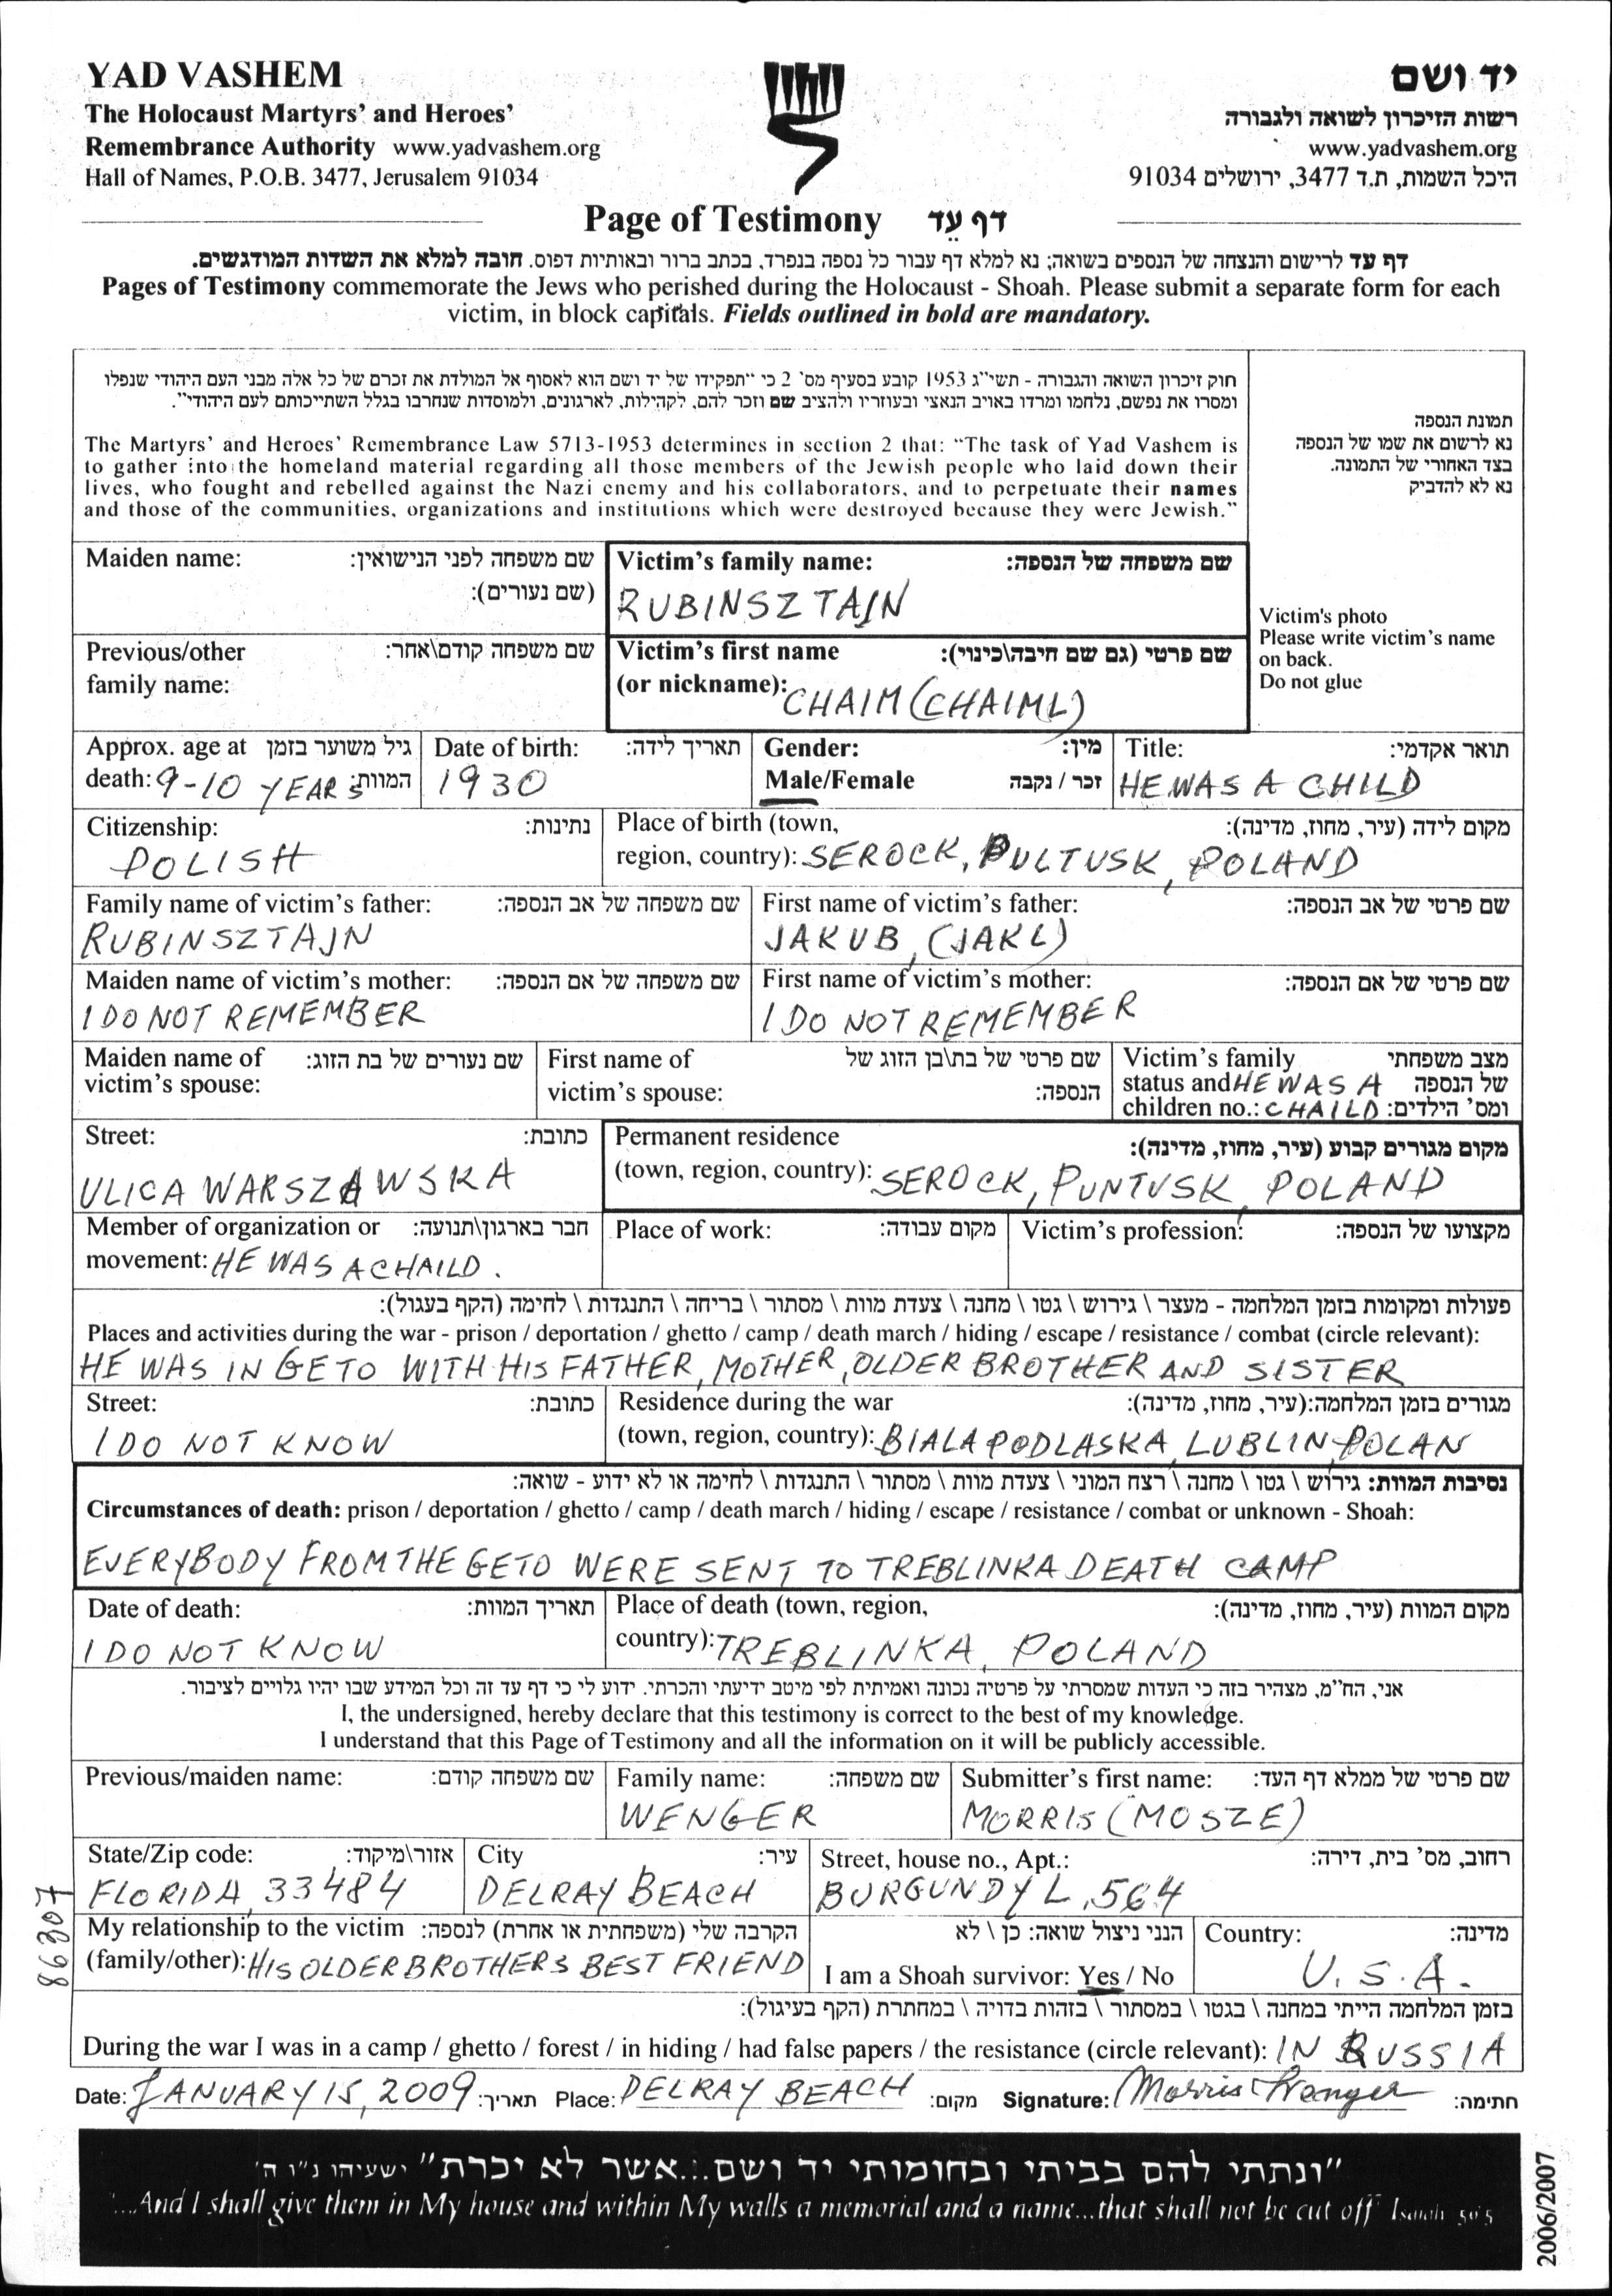 YAD VASHEM
The Holocaust Martyrs' and Heroes'
Remembrance Authority www.yadvashem.org
Hall of Names, P.O.B. 3477, Jerusalem 91034
יד ושם
רשות הזיכרון לשואה ולגבורה
www.yadvashem.org
היכל השמות, ת.ד 3477, ירושלים 91034
Page of Testimony דף עֵד
דף עד לרישום והנצחה של הנספים בשואה; נא למלא דף עבור כל נספה בנפרד, בכתב ברור ובאותיות דפוס. חובה למלא את השדות המודגשים.
Pages of Testimony commemorate the Jews who perished during the Holocaust - Shoah. Please submit a separate form for each
victim, in block capitals. Fields outlined in bold are mandatory.
חוק זיכרון השואה והגבורה - תשי"ג 1953 קובע בסעיף מס' 2 כי "תפקידו של יד ושם הוא לאסוף אל המולדת את זכרם של כל אלה מבני העם היהודי שנפלו
ומסרו את נפשם, נלחמו ומרדו באויב הנאצי ובעוזריו ולהציב שם וזכר להם, לקהילות, לארגונים, ולמוסדות שנחרבו בגלל השתייכותם לעם היהודי".
The Martyrs' and Heroes' Remembrance Law 5713-1953 determines in section 2 that: "The task of Yad Vashem is
to gather into the homeland material regarding all those members of the Jewish people who laid down their
lives, who fought and rebelled against the Nazi enemy and his collaborators, and to perpetuate their names
and those of the communities, organizations and institutions which were destroyed because they were Jewish."
תמונת הנספה
נא לרשום את שמו של הנספה
בצד האחורי של התמונה.
נא לא להדביק
Victim's photo
Please write victim's name
on back.
Do not glue
Maiden name: שם משפחה לפני הנישואין:
(שם נעורים):
Victim's family name: שם משפחה של הנספה:
RUBINSZTAJN
Previous/other שם משפחה קודם\אחר:
family name:
Victim's first name שם פרטי (גם שם חיבה\כינוי):
(or nickname): CHAIM (CHAIML)
Approx. age at גיל משוער בזמן
death: 9-10 YEARS המוות:
Date of birth: תאריך לידה:
1930
Gender: מין:
Male/Female זכר / נקבה
Title: תואר אקדמי:
HE WAS A CHILD
Citizenship: נתינות:
POLISH
Place of birth (town, מקום לידה (עיר, מחוז, מדינה):
region, country): SEROCK, PULTUSK, POLAND
Family name of victim's father: שם משפחה של אב הנספה:
RUBINSZTAJN
First name of victim's father: שם פרטי של אב הנספה:
JAKUB, (JAKL)
Maiden name of victim's mother: שם משפחה של אם הנספה:
I DO NOT REMEMBER
First name of victim's mother: שם פרטי של אם הנספה:
I DO NOT REMEMBER
Maiden name of שם נעורים של בת הזוג:
victim's spouse:
First name of שם פרטי של בת\בן הזוג של
victim's spouse: הנספה:
Victim's family מצב משפחתי
status and HE WAS A של הנספה
children no.: CHAILD ומס' הילדים:
Street: כתובת:
ULICA WARSZAWSKA
Permanent residence מקום מגורים קבוע (עיר, מחוז, מדינה):
(town, region, country): SEROCK, PUNTUSK, POLAND
Member of organization or חבר בארגון\תנועה:
movement: HE WAS A CHAILD.
Place of work: מקום עבודה:
Victim's profession: מקצועו של הנספה:
פעולות ומקומות בזמן המלחמה - מעצר \ גירוש \ גטו \ מחנה \ צעדת מוות \ מסתור \ בריחה \ התנגדות \ לחימה (הקף בעגול):
Places and activities during the war - prison / deportation / ghetto / camp / death march / hiding / escape / resistance / combat (circle relevant):
HE WAS IN GETO WITH HIS FATHER, MOTHER, OLDER BROTHER AND SISTER
Street: כתובת:
I DO NOT KNOW
Residence during the war מגורים בזמן המלחמה:(עיר, מחוז, מדינה):
(town, region, country): BIALA PODLASKA, LUBLIN, POLAN
נסיבות המוות: גירוש \ גטו \ מחנה \ רצח המוני \ צעדת מוות \ מסתור \ התנגדות \ לחימה או לא ידוע - שואה:
Circumstances of death: prison / deportation / ghetto / camp / death march / hiding / escape / resistance / combat or unknown - Shoah:
EVERYBODY FROM THE GETO WERE SENT TO TREBLINKA DEATH CAMP
Date of death: תאריך המוות:
I DO NOT KNOW
Place of death (town, region, מקום המוות (עיר, מחוז, מדינה):
country): TREBLINKA, POLAND
אני, הח"מ, מצהיר בזה כי העדות שמסרתי על פרטיה נכונה ואמיתית לפי מיטב ידיעתי והכרתי. ידוע לי כי דף עד זה וכל המידע שבו יהיו גלויים לציבור.
I, the undersigned, hereby declare that this testimony is correct to the best of my knowledge.
I understand that this Page of Testimony and all the information on it will be publicly accessible.
Previous/maiden name: שם משפחה קודם:
Family name: שם משפחה:
WENGER
Submitter's first name: שם פרטי של ממלא דף העד:
MORRIS (MOSZE)
State/Zip code: אזור\מיקוד:
FLORIDA, 33484
City עיר:
DELRAY BEACH
Street, house no., Apt.: רחוב, מס' בית, דירה:
BURGUNDY L, 564
My relationship to the victim הקרבה שלי (משפחתית או אחרת) לנספה:
(family/other): HIS OLDER BROTHERS BEST FRIEND
הנני ניצול שואה: כן \ לא
I am a Shoah survivor: Yes / No
Country: מדינה:
U.S.A.
בזמן המלחמה הייתי במחנה \ בגטו \ במסתור \ בזהות בדויה \ במחתרת (הקף בעיגול):
During the war I was in a camp / ghetto / forest / in hiding / had false papers / the resistance (circle relevant): IN RUSSIA
Date: JANUARY 15, 2009 תאריך: Place: DELRAY BEACH מקום: Signature: Morris Wenger חתימה:
"ונתתי להם בביתי ובחומותי יד ושם...אשר לא יכרת" ישעיהו נ"ו ה'
"...And I shall give them in My house and within My walls a memorial and a name...that shall not be cut off" Isaiah 56:5
86307
2006/2007